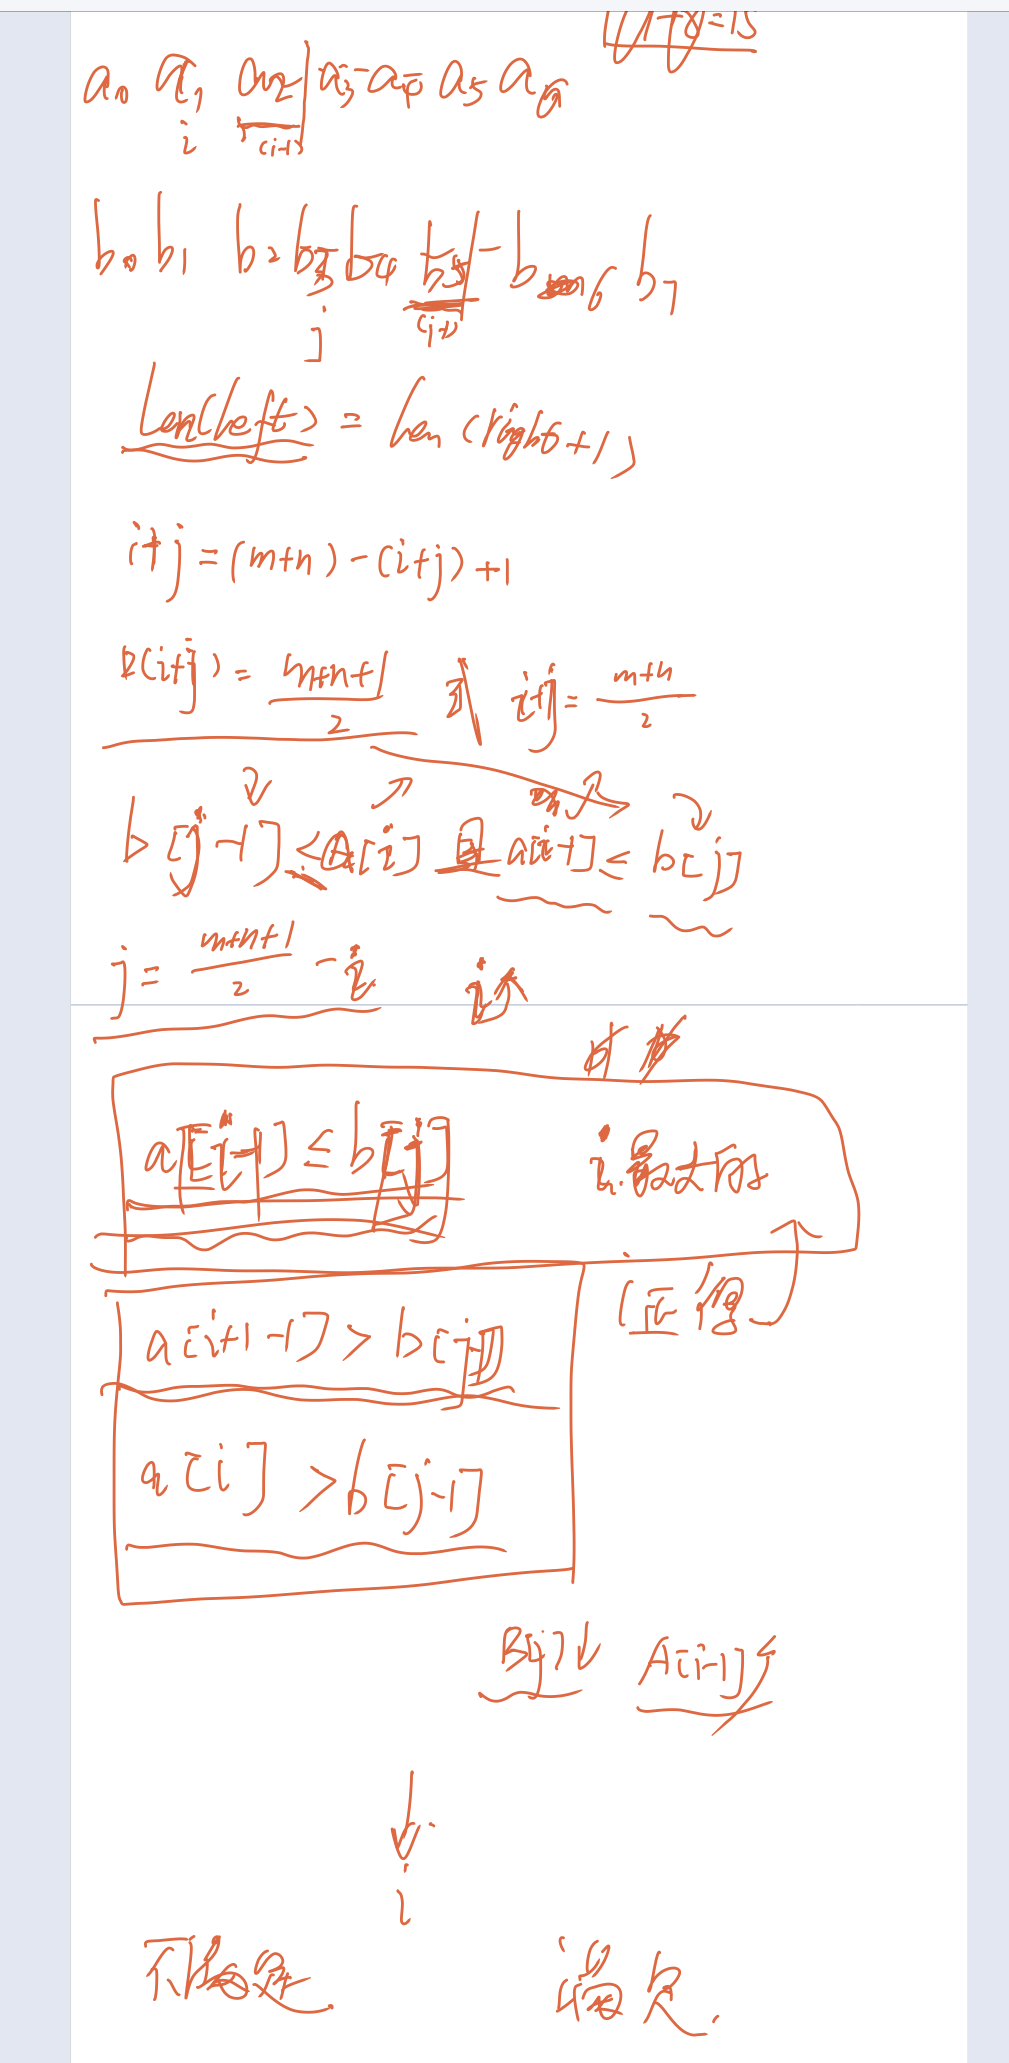 7+8=15
a0 a1 a2 | a3 - a4 a5 a6
i (i-1)
b0 b1 b2 b3 b4 b5 | - b6 b7
j (j-1)
len(left) = len(right+1)
i+j = (m+n) - (i+j) +1
2(i+j) = (m+n+1)/2 i+j = (m+n)/2
b[j-1] ≤ A[i] 且 a[i-1] ≤ b[j]
j = (m+n+1)/2 - i i↑
a[i-1] ≤ b[j] i最大的
a[i+1-1] > b[j-1] (正确)
a[i] > b[j-1]
B[j]↓ A[i-1]
i
不满足 满足.